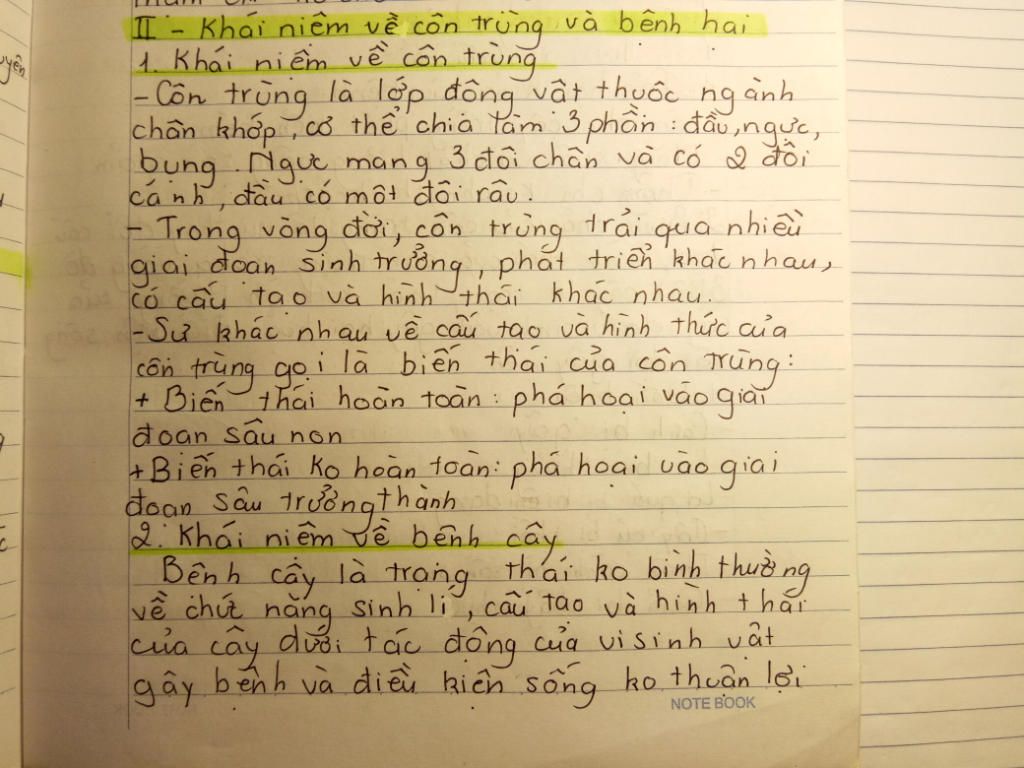 II - Khái niệm về côn trùng và bệnh hại
1. Khái niệm về côn trùng
- Côn trùng là lớp động vật thuộc ngành
chân khớp, cơ thể chia làm 3 phần: đầu, ngực,
bụng. Ngực mang 3 đôi chân và có 2 đôi
cánh, đầu có một đôi râu.
- Trong vòng đời, côn trùng trải qua nhiều
giai đoạn sinh trưởng, phát triển khác nhau,
có cấu tạo và hình thái khác nhau.
- Sự khác nhau về cấu tạo và hình thức của
côn trùng gọi là biến thái của côn trùng:
+ Biến thái hoàn toàn: phá hoại vào giai
đoạn sâu non
+ Biến thái ko hoàn toàn: phá hoại vào giai
đoạn sâu trưởng thành
2. Khái niệm về bệnh cây
Bệnh cây là trạng thái ko bình thường
về chức năng sinh lí, cấu tạo và hình thái
của cây dưới tác động của vi sinh vật
gây bệnh và điều kiện sống ko thuận lợi
NOTE BOOK